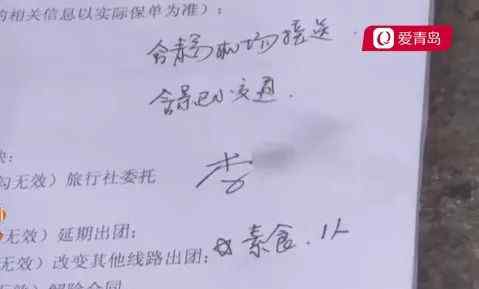 的相关信息以实际保单为准）：
爱青岛
含青岛机场接送.
含景区小交通.
勾无效）旅行社委托
李
无效）延期出团；
无效）改变其他线路出团；
素食.1人
无效）解除合同